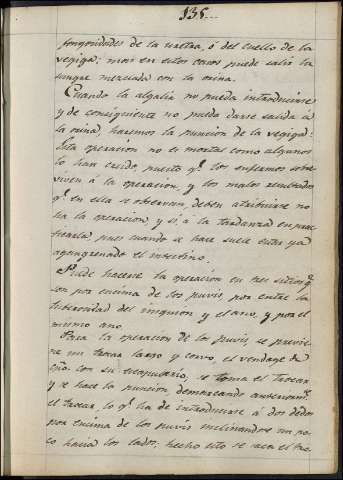 135..
fongocidades de la uretra, ó del cuello de la
vegiga; mas en estos casos puede salir la
sangre mezclada con la orina.
Cuando la algalia no pueda introducirse
y de consiguiente no pueda darse salida á
la orina, haremos la puncion de la vegiga:
Esta operacion no es mortal como algunos
lo han creido, puesto qe. los enfermos sobre
viven á la operacion, y los malos resultados
qe. en ella se observan, deben atribuirse no
ha la operacion, y si, á la tardanza en prac
ticarla, pues cuando se hace suele estar ya
agangrenado el intestino.
Puede hacerse la operacion en tres sitios qe.
son por encima de los puvis, por entre la
tuberosidad del isquion y el ano, y por el
mismo ano.
Para la operacion de los puvis, se previe
ne un trocar largo y corvo, el vendage de
cpo. con su escapulario, se toma el trocar
y se hace la puncion demarcando anteriormte.
el trocar, lo qe. ha de introducirse á dos dedos
por encima de los puvis inclinandose un po
co hacia los lados; hecho esto se saca el tro